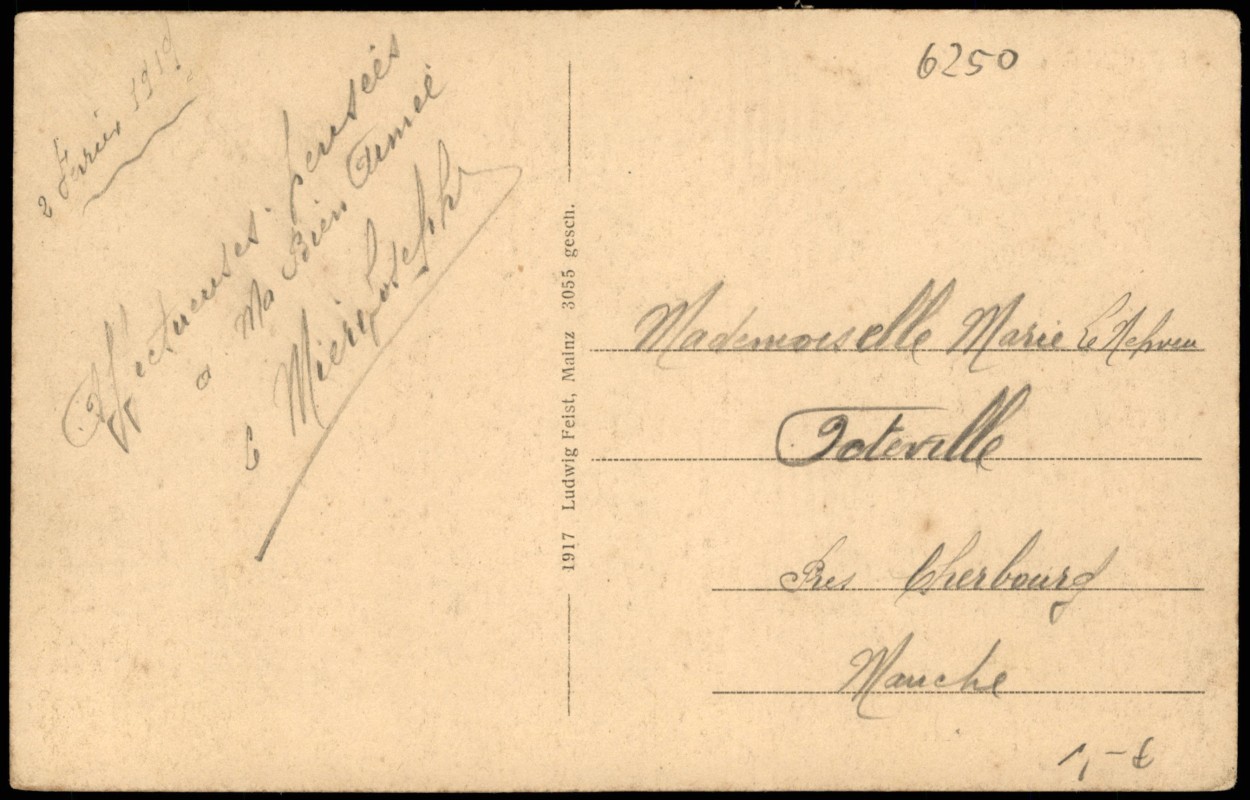 2 Fevrier 1919
Affectueuses pensées
a Ma Bien Aimée
6250
1917 Ludwig Feist, Mainz 3055 gesch.
Mademoiselle Marie
Toteville
Pres Cherbourg
Manche
1,-€